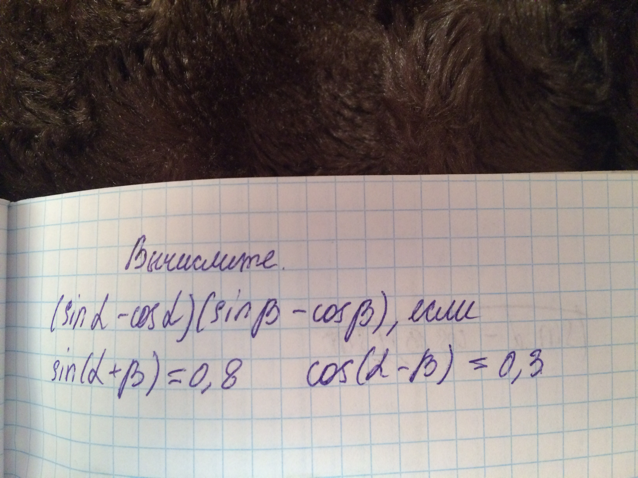 Вычислите.
(sinα-cosα)(sinβ-cosβ), если
sin(α+β)=0,8 cos(α-β)=0,3